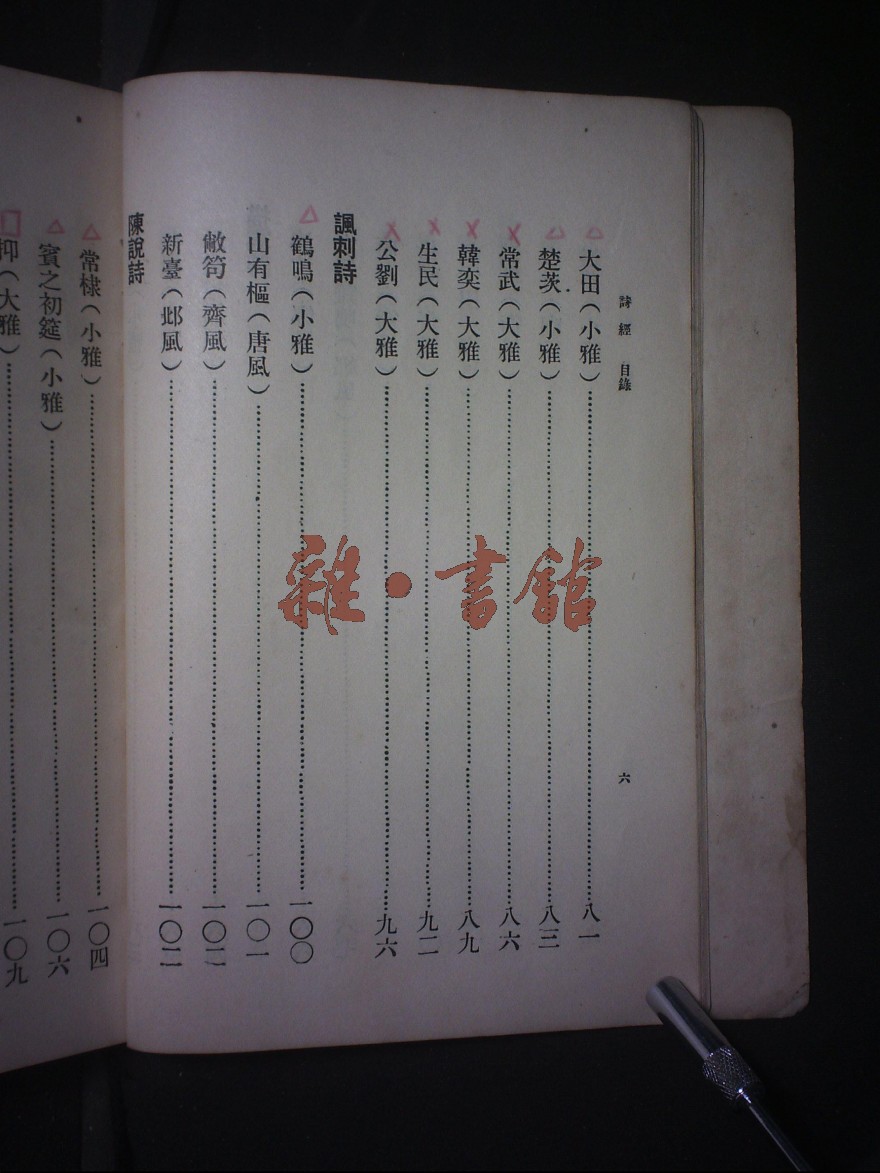 詩經 目錄 六
大田(小雅)……八一
楚茨(小雅)……八三
常武(大雅)……八六
韓奕(大雅)……八九
生民(大雅)……九二
公劉(大雅)……九六
諷刺詩
鶴鳴(小雅)……一〇〇
山有樞(唐風)……一〇一
敝笱(齊風)……一〇二
新臺(邶風)……一〇二
陳說詩
常棣(小雅)……一〇四
賓之初筵(小雅)……一〇六
抑(大雅)……一〇九
雜·書館